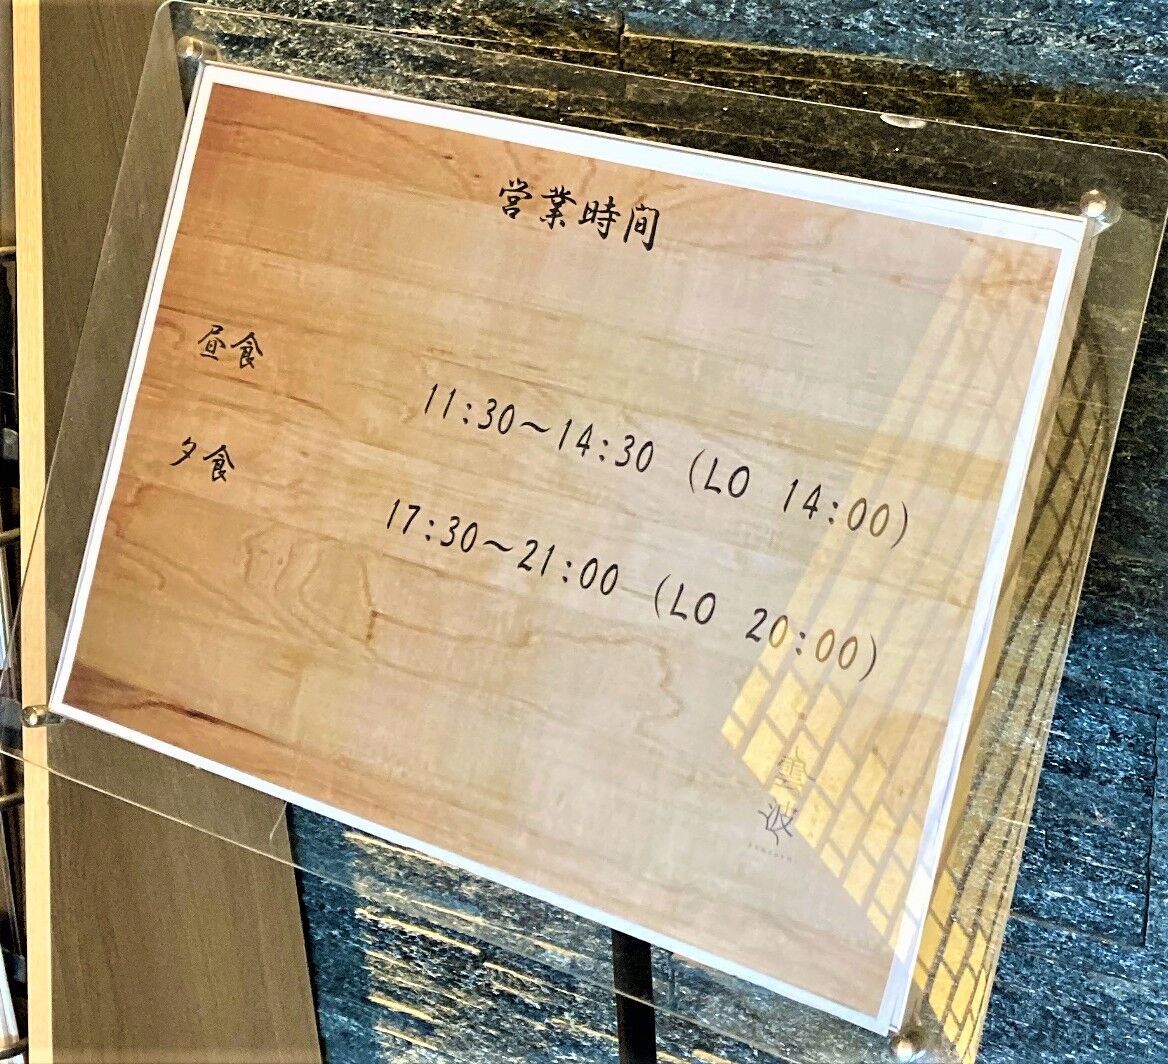 営業時間
昼食
11:30～14:30 (LO 14:00)
夕食
17:30～21:00 (LO 20:00)
雲波